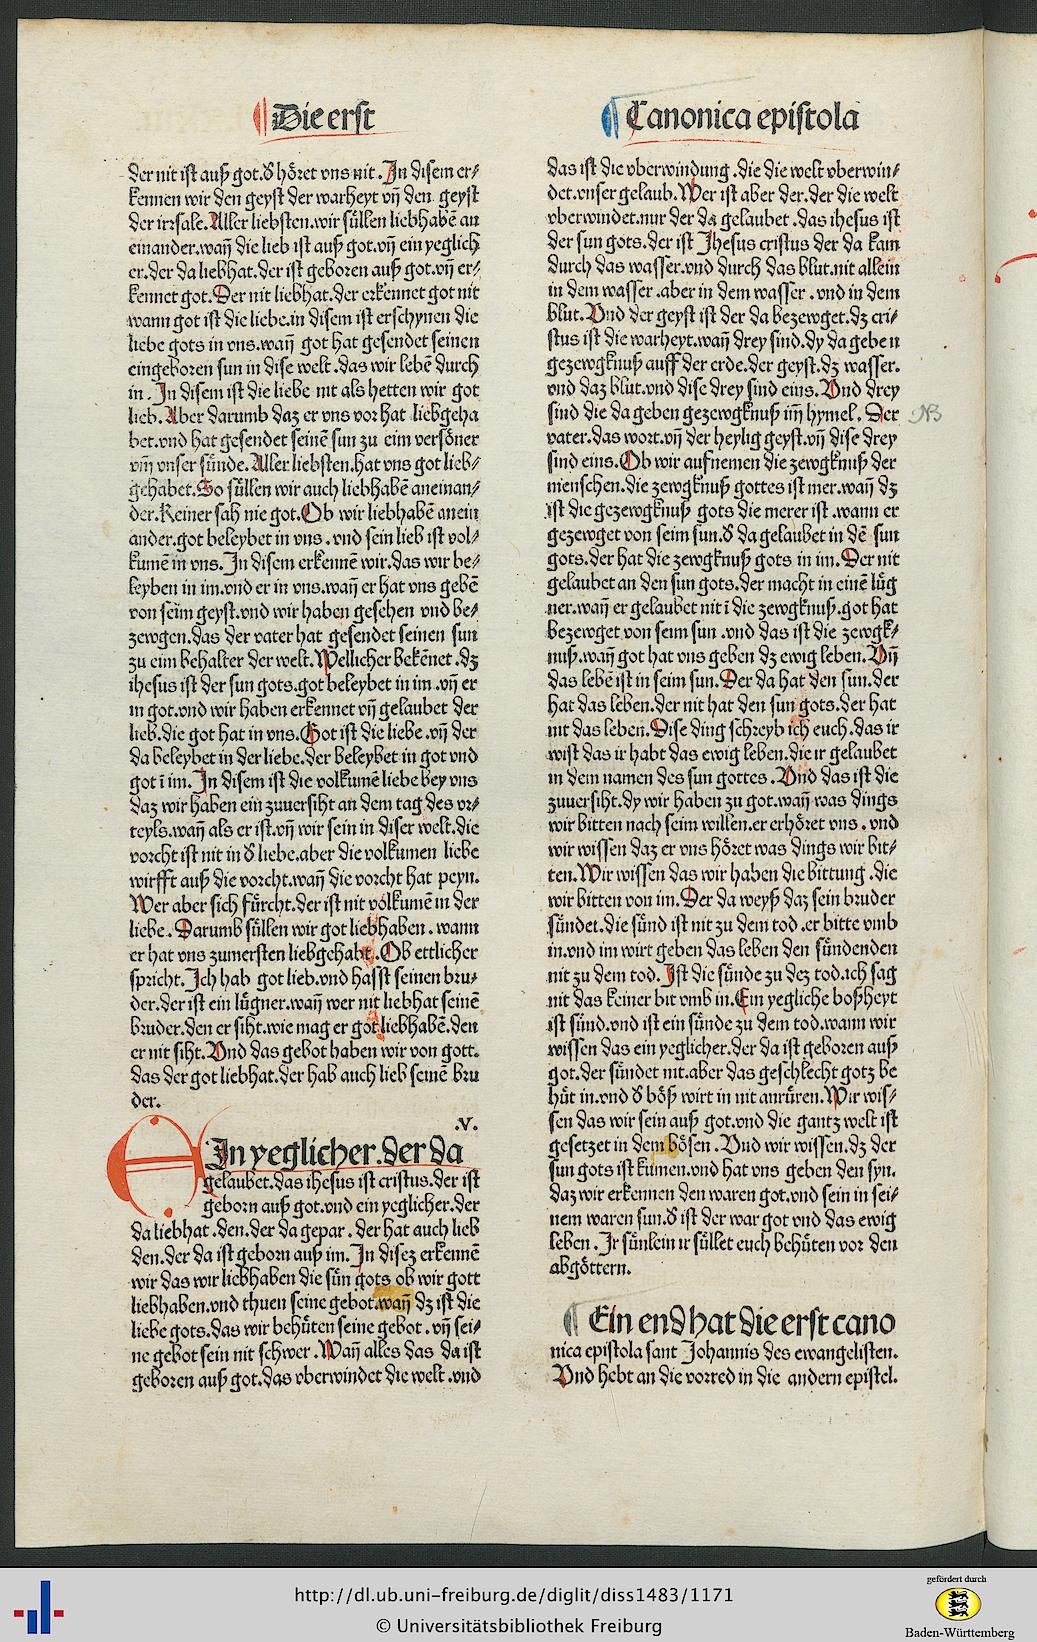 Die erst
Canonica epistola
der nit ist auß got.d̕ höret vns nit. In disem er⸗
kennen wir den geyst der warheyt vn̄ den geyst
der irrsale. Aller liebsten.wir süllen liebhabē an
einander.wañ die lieb ist auß got.vn̄ ein yeglich
er.der da liebhat.der ist geboren auß got.vn̄ er⸗
kennet got. Der nit liebhat.der erkennet got nit
wann got ist die liebe.in disem ist erschynen die
liebe gots in vns.wañ got hat gesendet seinen
eingeboren sun in dise welt.das wir lebē durch
in. In disem ist die liebe nit als hetten wir got
lieb. Aber darumb daz er vns vor hat liebgeha
bet.vnd hat gesendet seinē sun zu eim versöner
vm̄ vnser sünde. Aller liebsten.hat vns got lieb⸗
gehabet. So süllen wir auch liebhabē aneinan⸗
der. Keiner sah nie got. Ob wir liebhabē anein
ander.got beleybet in vns.vnd sein lieb ist vol⸗
kumē in vns. In disem erkennē wir.das wir be⸗
leyben in im.vnd er in vns.wañ er hat vns gebē
von seim geyst.vnd wir haben gesehen vnd be⸗
zewgen.das der vater hat gesendet seinen sun
zu eim behalter der welt. Wellicher bekēnet.dz
ihesus ist der sun gots.got beleybet in im.vn̄ er
in got.vnd wir haben erkennet vn̄ gelaubet der
lieb.die got hat in vns. Got ist die liebe.vn̄ der
da beleybet in der liebe.der beleybet in got vnd
got ī im. In disem ist die volkumē liebe bey vns
daz wir haben ein zuuersiht an dem tag des vr⸗
teyls.wañ als er ist.vn̄ wir sein in diser welt.die
vorcht ist nit in d̕ liebe.aber die volkumen liebe
wirfft auß die vorcht.wañ die vorcht hat peyn.
Wer aber sich fürcht.der ist nit volkumē in der
liebe. Darumb süllen wir got liebhaben. wann
er hat vns zumersten liebgehabt. Ob ettlicher
spricht. Ich hab got lieb.vnd hasst seinen bru⸗
der.der ist ein lügner.wañ wer nit liebhat seinē
bruder.den er siht.wie mag er got liebhabē.den
er nit siht. Vnd das gebot haben wir von gott.
das der got liebhat.der hab auch lieb seinē bru
der.
.V.
EIn yeglicher.der da
gelaubet.das ihesus ist cristus.der ist
geborn auß got.vnd ein yeglicher.der
da liebhat.den.der da gepar. der hat auch lieb
den.der da ist geborn auß im. In disez erkennē
wir das wir liebhaben die sün gots ob wir gott
liebhaben.vnd thuen seine gebot.wañ dz ist die
liebe gots.das wir behüten seine gebot.vn̄ sei⸗
ne gebot sein nit schwer. Wañ alles das da ist
geboren auß got.das vberwindet die welt.vnd
das ist die vberwindung.die die welt vberwin⸗
det.vnser gelaub. Wer ist aber der.der die welt
vberwindet.nur der da gelaubet.das ihesus ist
der sun gots.der ist Ihesus cristus der da kam
durch das wasser.vnd durch das blut.nit allein
in dem wasser.aber in dem wasser.vnd in dem
blut. Vnd der geyst ist der da bezewget.dz cri⸗
stus ist die warheyt.wañ drey sind.dy da geben
gezewgknuß auff der erde.der geyst.dz wasser.
vnd daz blut.vnd dise drey sind eins. Vnd drey
sind die da geben gezewgknuß im̄ hymel. Der
NB
vater.das wort.vn̄ der heylig geyst.vn̄ dise drey
sind eins. Ob wir aufnemen die zewgknuß der
menschen.die zewgknuß gottes ist mer.wañ dz
ist die gezewgknuß gots die merer ist.wann er
gezewget von seim sun.d̕ da gelaubet in dē sun
gots.der hat die zewgknuß gots in im. Der nit
gelaubet an den sun gots.der macht in einē lüg
ner.wañ er gelaubet nit ī die zewgknuß.got hat
bezewget von seim sun.vnd das ist die zewgk⸗
nuß.wañ got hat vns geben dz ewig leben. Vn̄
das lebē ist in seim sun. Der da hat den sun.der
hat das leben.der nit hat den sun gots.der hat
nit das leben. Dise ding schreyb ich euch.das ir
wist das ir habt das ewig leben.die ir gelaubet
in dem namen des sun gottes. Vnd das ist die
zuuersiht.dy wir haben zu got.wañ was dings
wir bitten nach seim willen.er erhöret vns.vnd
wir wissen daz er vns höret was dings wir bit⸗
ten. Wir wissen das wir haben die bittung.die
wir bitten von im. Der da weyß daz sein bruder
sündet.die sünd ist nit zu dem tod.er bitte vmb
in.vnd im wirt geben das leben den sündenden
nit zu dem tod. Ist die sünde zu dez tod.ich sag
nit das keiner bit vmb in. Ein yegliche boßheyt
ist sünd.vnd ist ein sünde zu dem tod.wann wir
wissen das ein yeglicher.der da ist geboren auß
got.der sündet nit.aber das geschlecht gotz be
hüt in.vnd d̕ böß wirt in nit anrüren. Wir wis⸗
sen das wir sein auß got.vnd die gantz welt ist
gesetzet in dem bösen. Vnd wir wissen.dz der
sun gots ist kumen.vnd hat vns geben den syn.
daz wir erkennen den waren got.vnd sein in sei⸗
nem waren sun.d̕ ist der war got vnd das ewig
leben. Ir sünlein ir süllet euch behüten vor den
abgöttern.
Ein end hat die erst cano
nica epistola sant Johannis des ewangelisten.
Vnd hebt an die vorred in die andern epistel.
http://dl.ub.uni-freiburg.de/diglit/diss1483/1171
© Universitätsbibliothek Freiburg
gefördert durch
Baden-Württemberg